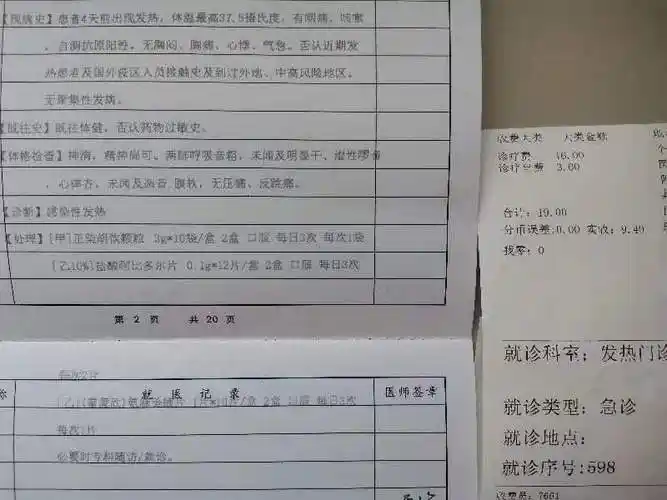 【现病史】患者4天前出现发热，体温最高37.5摄氏度，有咽痛、咳嗽
，自测抗原阳性。无胸闷、胸痛、心悸、气急。否认近期发
热患者及国外疫区人员接触史及到过外地、中高风险地区。
无聚集性发病。
【既往史】既往体健，否认药物过敏史。
【体格检查】神清，精神尚可。两肺呼吸音粗，未闻及明显干、湿性啰音
，心律齐，未闻及杂音，腹软，无压痛、反跳痛。
【诊断】感染性发热
【处理】[甲]正柴胡饮颗粒 3g*10袋/盒 2盒 口服 每日3次 每次1袋
[乙10%]盐酸阿比多尔片 0.1g*12片/盒 2盒 口服 每日3次
第 2 页 共 20 页
每次2片
就 医 记 录 医师签章
氨麻 2盒 口服 每日3次
每次1片
必要时专科随访/就诊。
收费大类 大类金额
诊疗费 16.00
诊疗自费 3.00
合计：19.00
分币误差:0.00 实收：9.40
找零：0
就诊科室：发热门诊
就诊类型：急诊
就诊地点：
就诊序号:598
收费员：7661